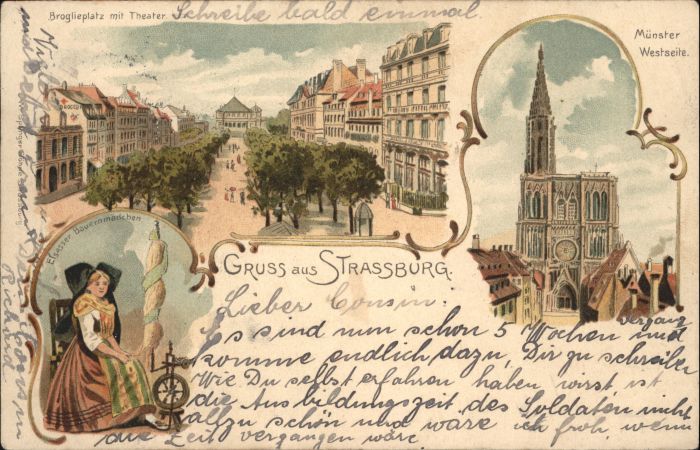 Broglieplatz mit Theater.
Schreibe bald einmal
Münster
Westseite.
Elsässer Bauernmädchen
GRUSS aus STRASSBURG.
Lieber Cousin!
Es sind nun schon 5 Wochen vergan
und
komme endlich dazu, Dir zu schreiben
Wie Du selbst erfahren haben wirst ist
die Ausbildungszeit des Soldaten nicht
allzu schön und wäre ich froh, wenn
die Zeit vergangen wäre
Viele
Cousin
Richard